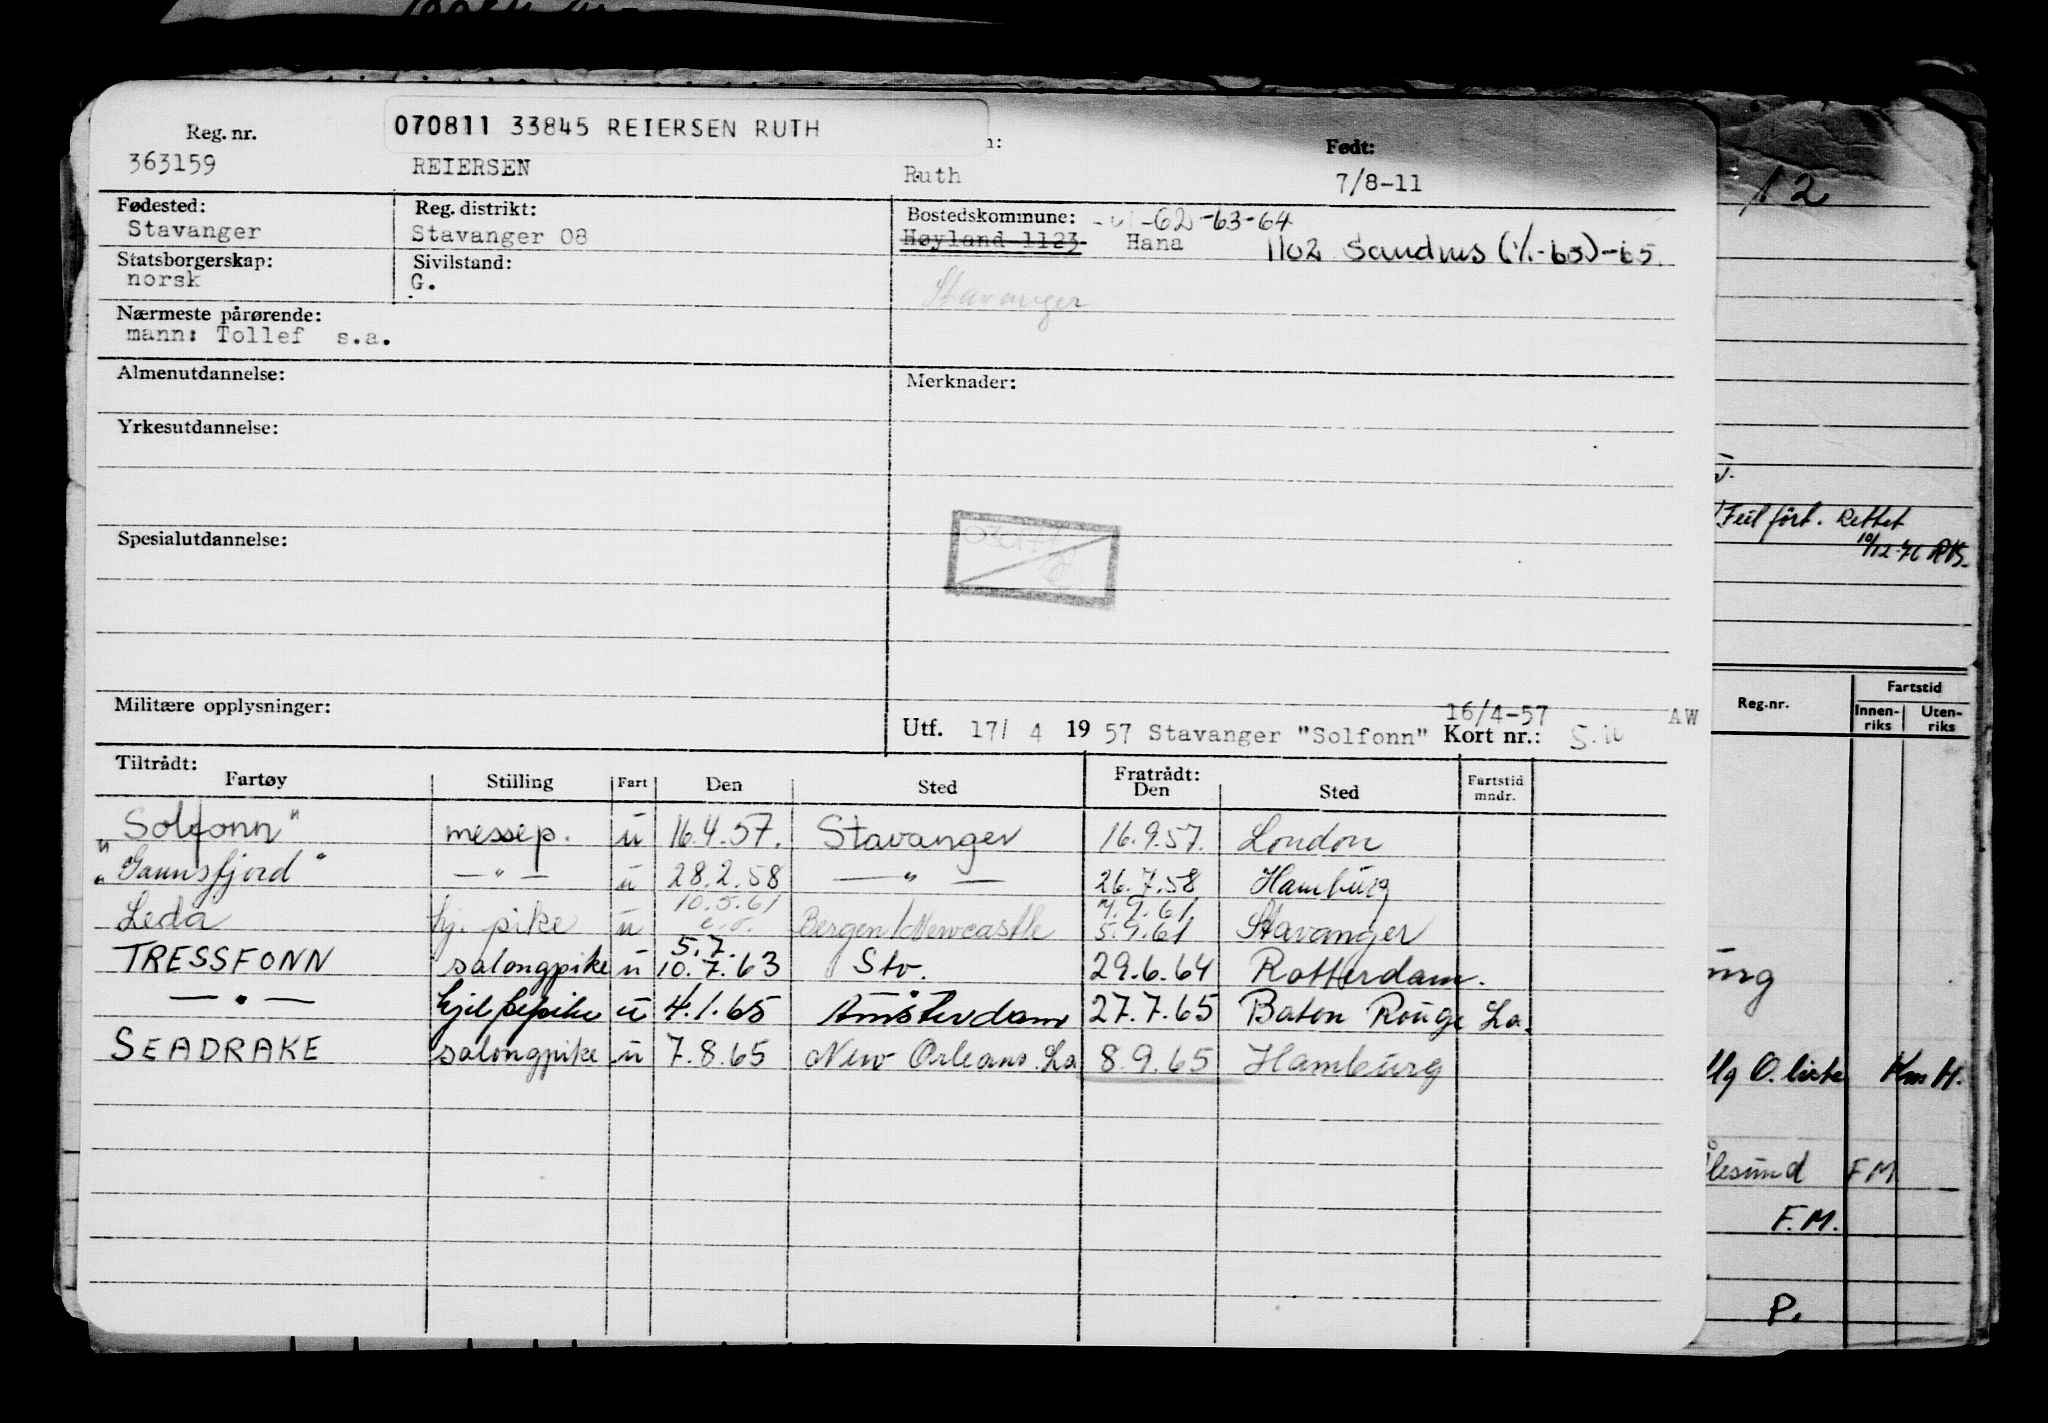 070811 33845 REIERSEN RUTH
Reg. nr. Født:
363159 REIERSEN Ruth 7/8-11
Fødested: Reg. distrikt: Bostedskommune: -62-63-64
Stavanger Stavanger 08 Høyland 1123 Hana 1102 Sandnes (1/1-65)-65
Statsborgerskap: Sivilstand:
norsk G. Stavanger
Nærmeste pårørende:
mann: Tollef s.a.
Almenutdannelse: Merknader:
Yrkesutdannelse:
Spesialutdannelse:
Militære opplysninger: 16/4-57 AW
Utf. 17/ 4 19 57 Stavanger "Solfonn" Kort nr.:
Tiltrådt: Fratrådt:
Fartøy Stilling Fart Den Sted Den Sted Fartstid mndr.
"Solfonn" messep. u 16.4.57. Stavanger 16.9.57. London
"Gannsfjord" —"— u 28.2.58 —"— 26.7.58 Hamburg
10.5.61 7.9.61
Leda hj. pike u Bergen/Newcastle 5.9.61 Stavanger
5.7.
TRESSFONN salongpike u 10.7.63 Stv. 29.6.64 Rotterdam.
—"— u 4.1.65 Amsterdam 27.7.65 Baton Rouge La.
SEADRAKE salongpike u 7.8.65 New Orleans. La 8.9.65 Hamburg
12
Feil ført. Rettet
10/12-76
Reg.nr. Fartstid
Innen-riks Uten-riks
ung
F M
F.M.
P.